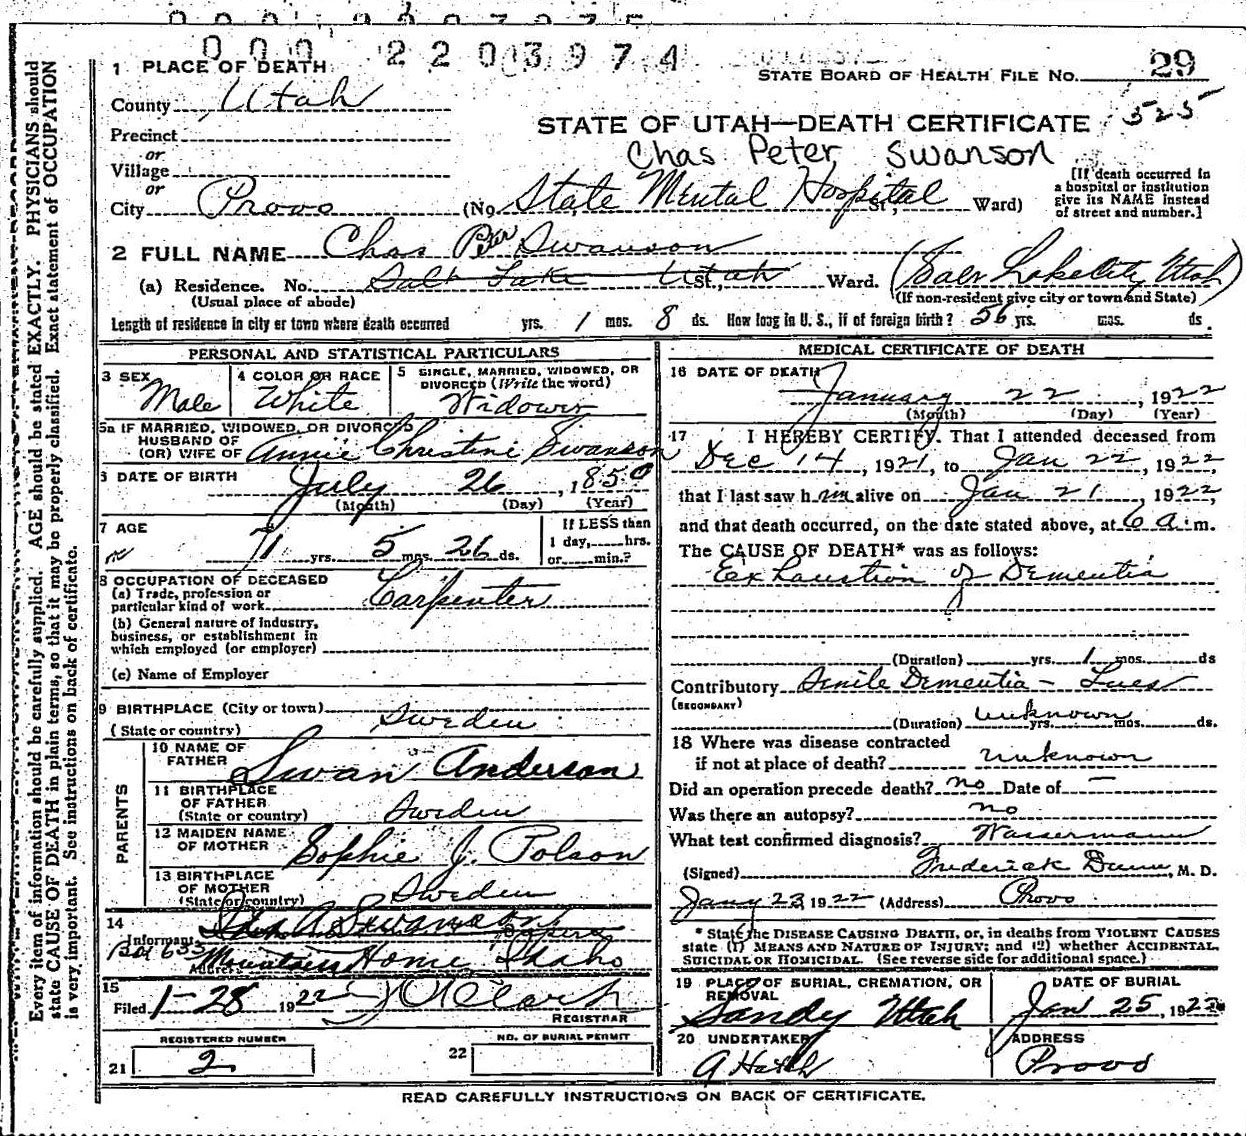 000 2203974
1 PLACE OF DEATH
STATE BOARD OF HEALTH FILE NO. 29
County Utah
525
STATE OF UTAH—DEATH CERTIFICATE
Precinct
Chas Peter Swanson
or
Village
or
[If death occurred in a hospital or institution give its NAME instead of street and number.]
City Provo (No. State Mental Hospital St., Ward)
2 FULL NAME Chas Peter Swanson
(a) Residence. No. Salt Lake Utah St., Ward. (Salt Lake City Utah)
(Usual place of abode) (If non-resident give city or town and State)
Length of residence in city or town where death occurred yrs. 1 mos. 8 ds. How long in U. S., if of foreign birth? 56 yrs. mos. ds.
PERSONAL AND STATISTICAL PARTICULARS
3 SEX Male
4 COLOR OR RACE White
5 SINGLE, MARRIED, WIDOWED, OR DIVORCED (Write the word) Widower
5a IF MARRIED, WIDOWED, OR DIVORCED
HUSBAND OF
(OR) WIFE OF Annie Christine Swanson
6 DATE OF BIRTH July 26, 1850
(Month) (Day) (Year)
7 AGE 71 yrs. 5 mos. 26 ds.
If LESS than 1 day, hrs. or min.?
8 OCCUPATION OF DECEASED
(a) Trade, profession or particular kind of work Carpenter
(b) General nature of industry, business, or establishment in which employed (or employer)
(c) Name of Employer
9 BIRTHPLACE (City or town)
(State or country) Sweden
PARENTS
10 NAME OF FATHER Swan Anderson
11 BIRTHPLACE OF FATHER (State or country) Sweden
12 MAIDEN NAME OF MOTHER Sophie J. Polson
13 BIRTHPLACE OF MOTHER (State or country) Sweden
14
Informant A. Swanson
Box 633
Address Mountain Home Idaho
15
Filed 1-28 1922 Clark
REGISTRAR
REGISTERED NUMBER
21 2
NO. OF BURIAL PERMIT
22
MEDICAL CERTIFICATE OF DEATH
16 DATE OF DEATH
January 22, 1922
(Month) (Day) (Year)
17 I HEREBY CERTIFY, That I attended deceased from
Dec 14, 1921, to Jan 22, 1922,
that I last saw him alive on Jan 21, 1922
and that death occurred, on the date stated above, at 6 a.m.
The CAUSE OF DEATH* was as follows:
Exhaustion of Dementia
(Duration) yrs. 1 mos. ds
Contributory Senile Dementia - Lues
(SECONDARY)
(Duration) unknown yrs. mos. ds.
18 Where was disease contracted
if not at place of death? unknown
Did an operation precede death? no Date of —
Was there an autopsy? no
What test confirmed diagnosis? Wassermann
(Signed) Frederick Dunn, M. D.
Jany 23, 1922 (Address) Provo
* State the DISEASE CAUSING DEATH, or, in deaths from VIOLENT CAUSES
state (1) MEANS AND NATURE OF INJURY; and (2) whether ACCIDENTAL,
SUICIDAL or HOMICIDAL. (See reverse side for additional space.)
19 PLACE OF BURIAL, CREMATION, OR REMOVAL
Sandy Utah
DATE OF BURIAL
Jan 25, 1922
20 UNDERTAKER
A Hatch
ADDRESS
Provo
READ CAREFULLY INSTRUCTIONS ON BACK OF CERTIFICATE.
Every item of information should be carefully supplied. AGE should be stated EXACTLY. PHYSICIANS should
state CAUSE OF DEATH in plain terms, so that it may be properly classified. Exact statement of OCCUPATION
is very important. See instructions on back of certificate.